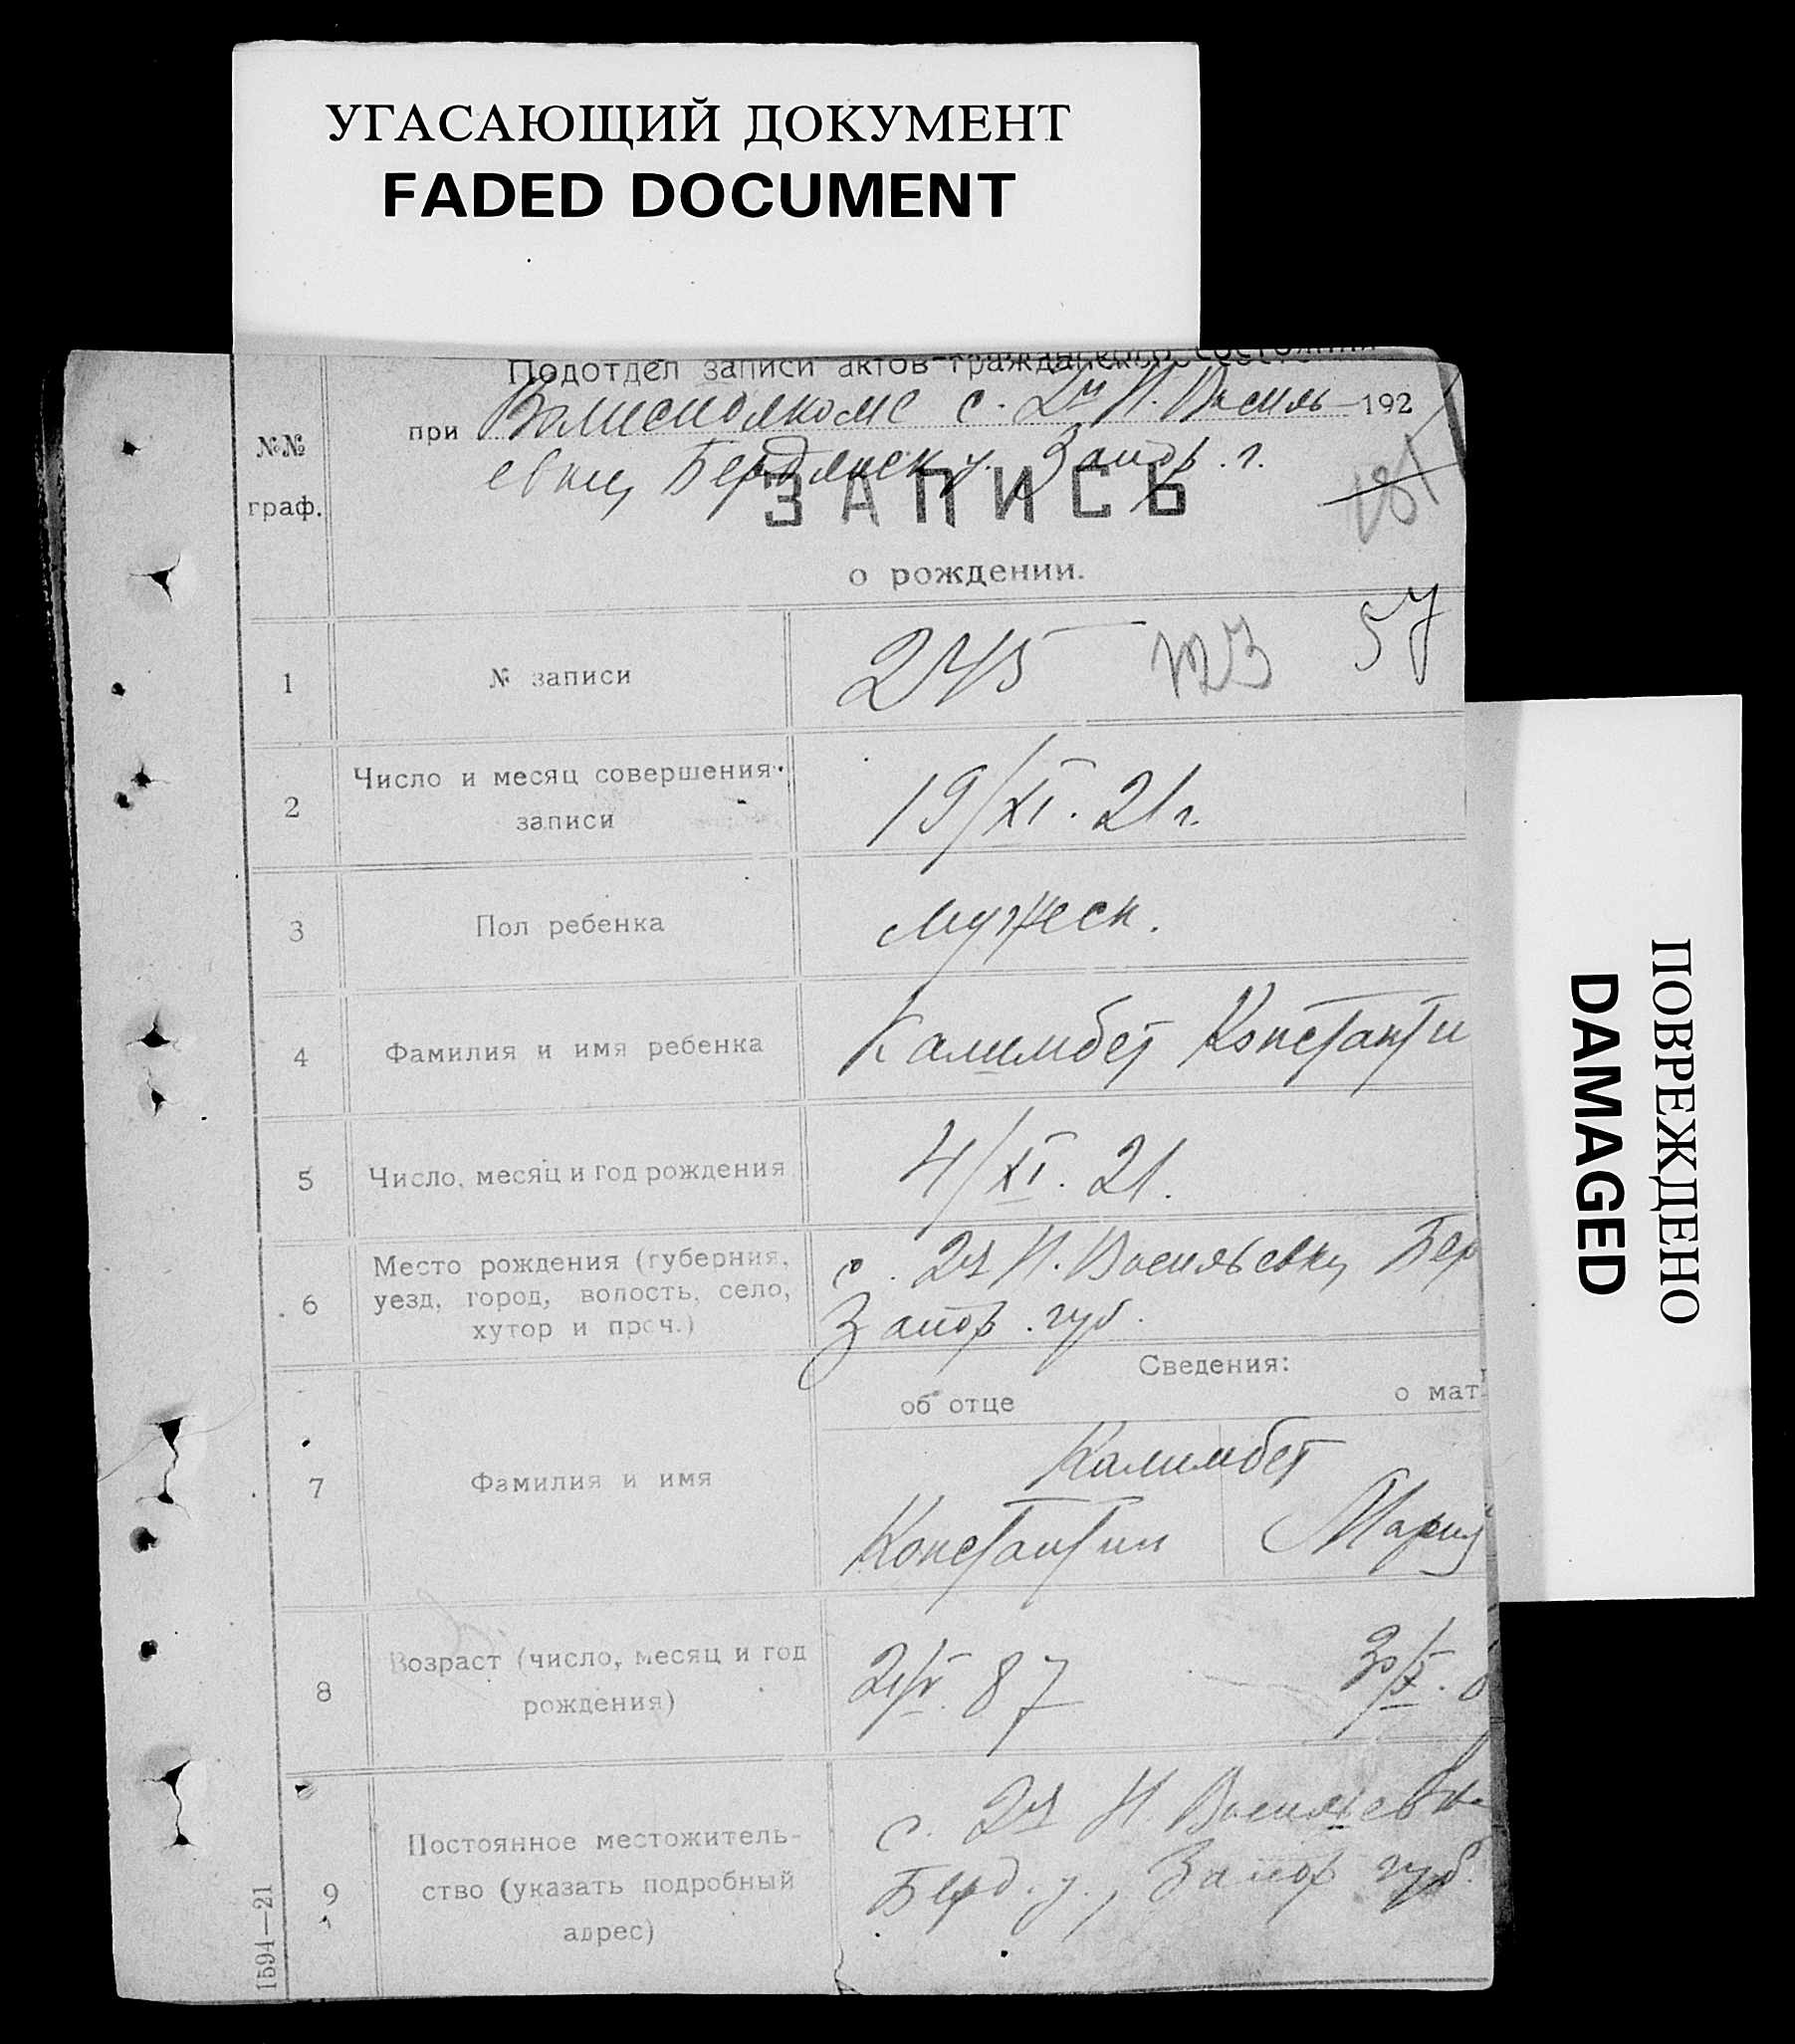 УГАСАЮЩИЙ ДОКУМЕНТ
FADED DOCUMENT
Подотдел записи актов гражданского состояния
при Волисполкоме с. 2й Н. Василь- 192
евки, Бердянск у. Запор. г.
№№
граф.
ЗАПИСЬ
181
о рождении.
1 № записи 245 123 57
2 Число и месяц совершения
записи
19/XI. 21 г.
3 Пол ребенка мужеск.
4 Фамилия и имя ребенка Калимбет Константи
5 Число, месяц и год рождения 4/XI. 21.
6 Место рождения (губерния,
уезд, город, волость, село,
хутор и проч.)
с. 2й Н. Васильевки, Бер
Запор. губ.
Сведения:
об отце о мат
7 Фамилия и имя
Калимбет
Константин Мария
8 Возраст (число, месяц и год
рождения)
21/V. 87 30/X.
9 Постоянное местожитель-
ство (указать подробный
адрес)
с. 2й Н. Васильевк
Берд. у., Запор губ.
1594—21
ПОВРЕЖДЕНО
DAMAGED